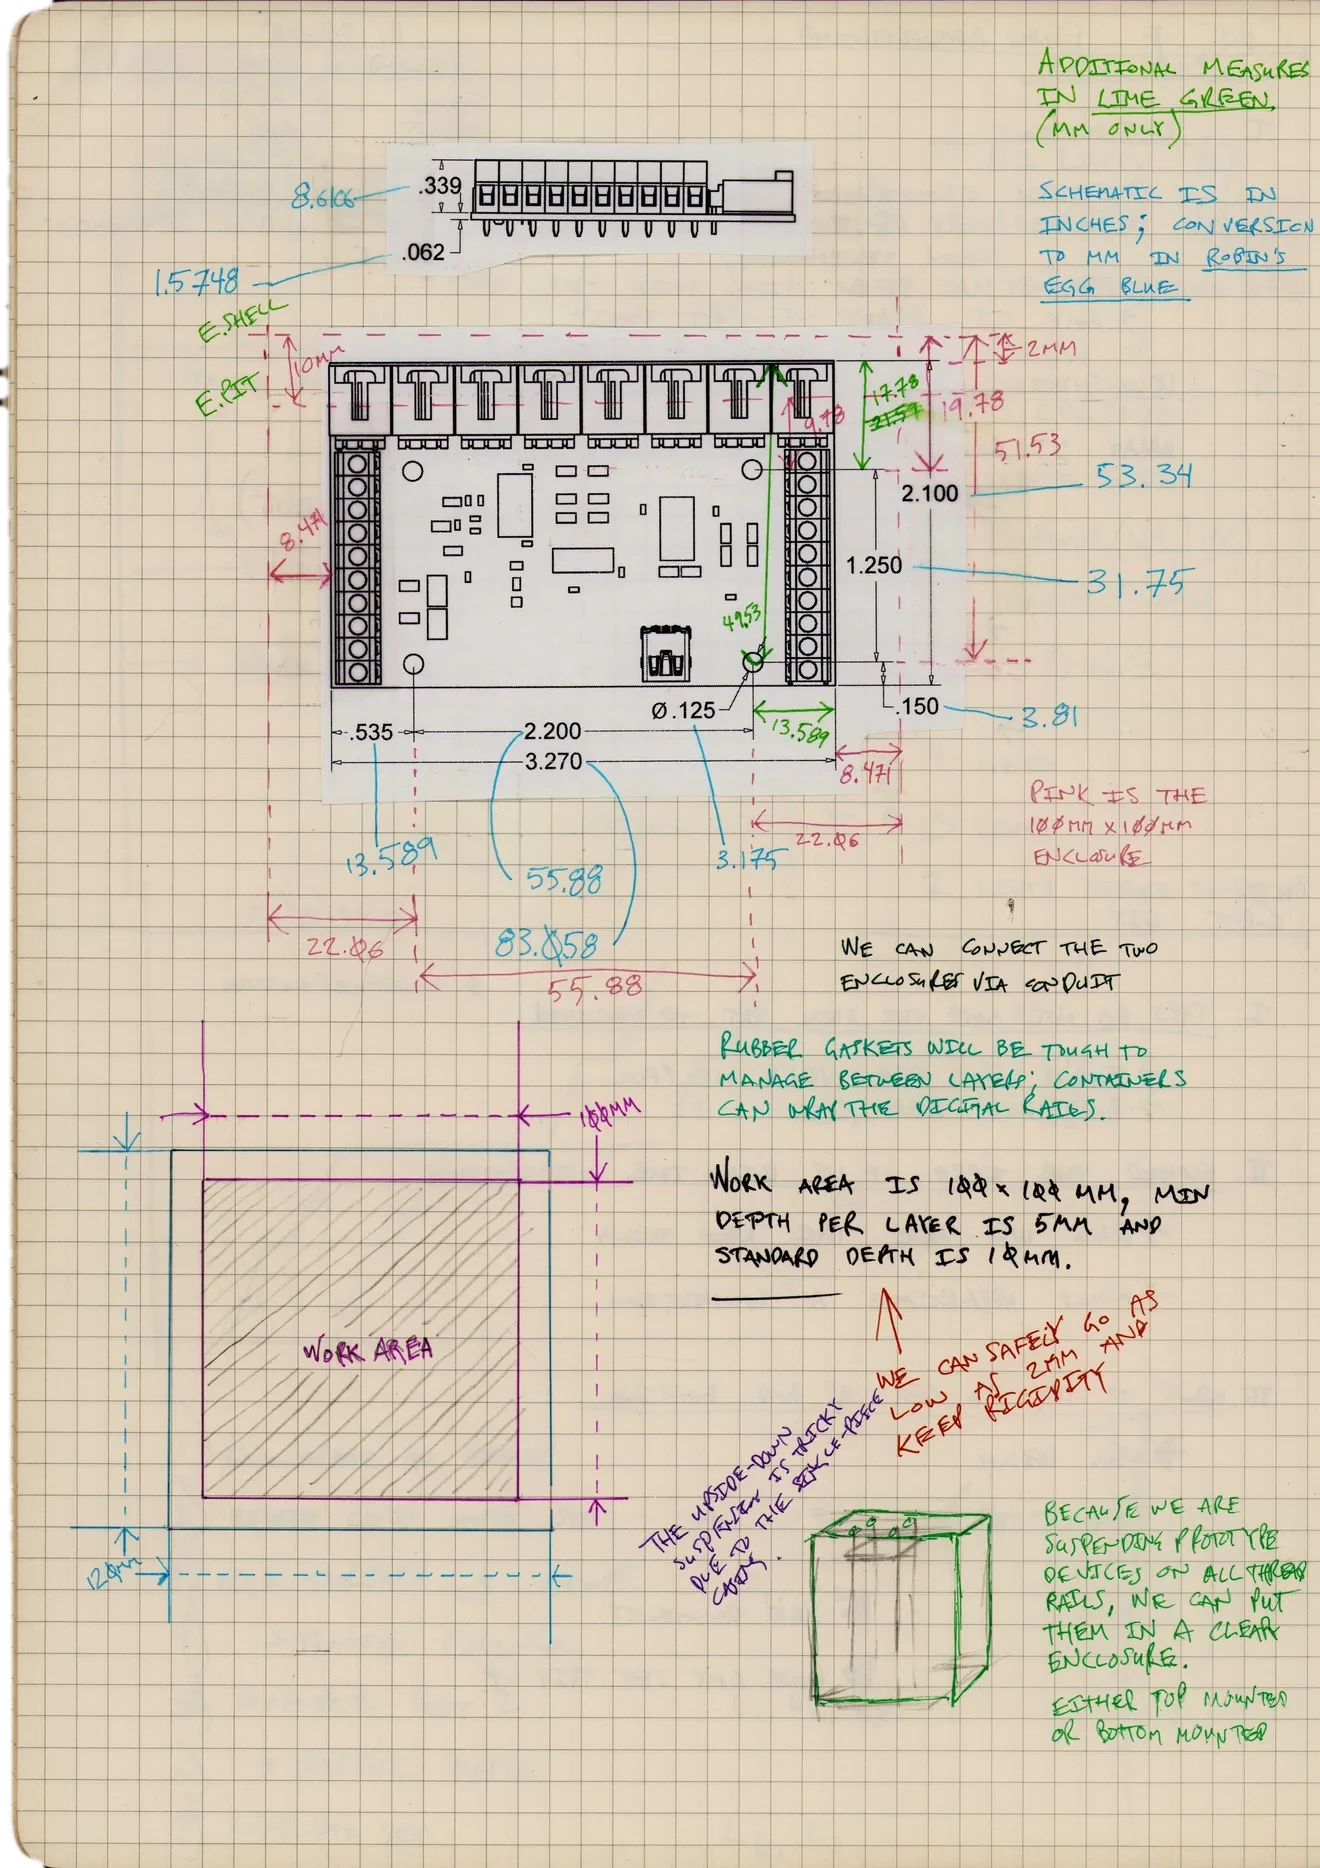 ADDITIONAL MEASURES
IN LIME GREEN.
(MM ONLY)
.339
8.6106
.062
1.5748
SCHEMATIC IS IN
INCHES; CONVERSION
TO MM IN ROBIN'S
EGG BLUE
E.SHELL
E.PIT
10MM
2MM
17.78
21.59
9.78
19.78
51.53
53.34
2.100
8.471
1.250
31.75
49.53
Ø.125
.150
3.81
13.589
.535
2.200
3.270
8.471
PINK IS THE
1ØØMM X 1ØØMM
ENCLOSURE
22.Ø6
13.589
55.88
3.175
22.Ø6
83.Ø58
55.88
WE CAN CONNECT THE TWO
ENCLOSURES VIA CONDUIT
RUBBER GASKETS WILL BE TOUGH TO
MANAGE BETWEEN LAYERS; CONTAINERS
CAN WRAP THE DIGITAL RAILS.
1ØØMM
WORK AREA IS 1ØØ X 1ØØ MM, MIN
DEPTH PER LAYER IS 5MM AND
STANDARD DEPTH IS 1ØMM.
WORK AREA
WE CAN SAFELY GO AS
LOW AS 2MM AND
KEEP RIGIDITY
THE UPSIDE-DOWN
SUSPENSION IS TRICKY
DUE TO THE SINGLE-PIECE
CASING.
12ØMM
BECAUSE WE ARE
SUSPENDING PROTOTYPE
DEVICES ON ALL THREAD
RAILS, WE CAN PUT
THEM IN A CLEAR
ENCLOSURE.
EITHER TOP MOUNTED
OR BOTTOM MOUNTED